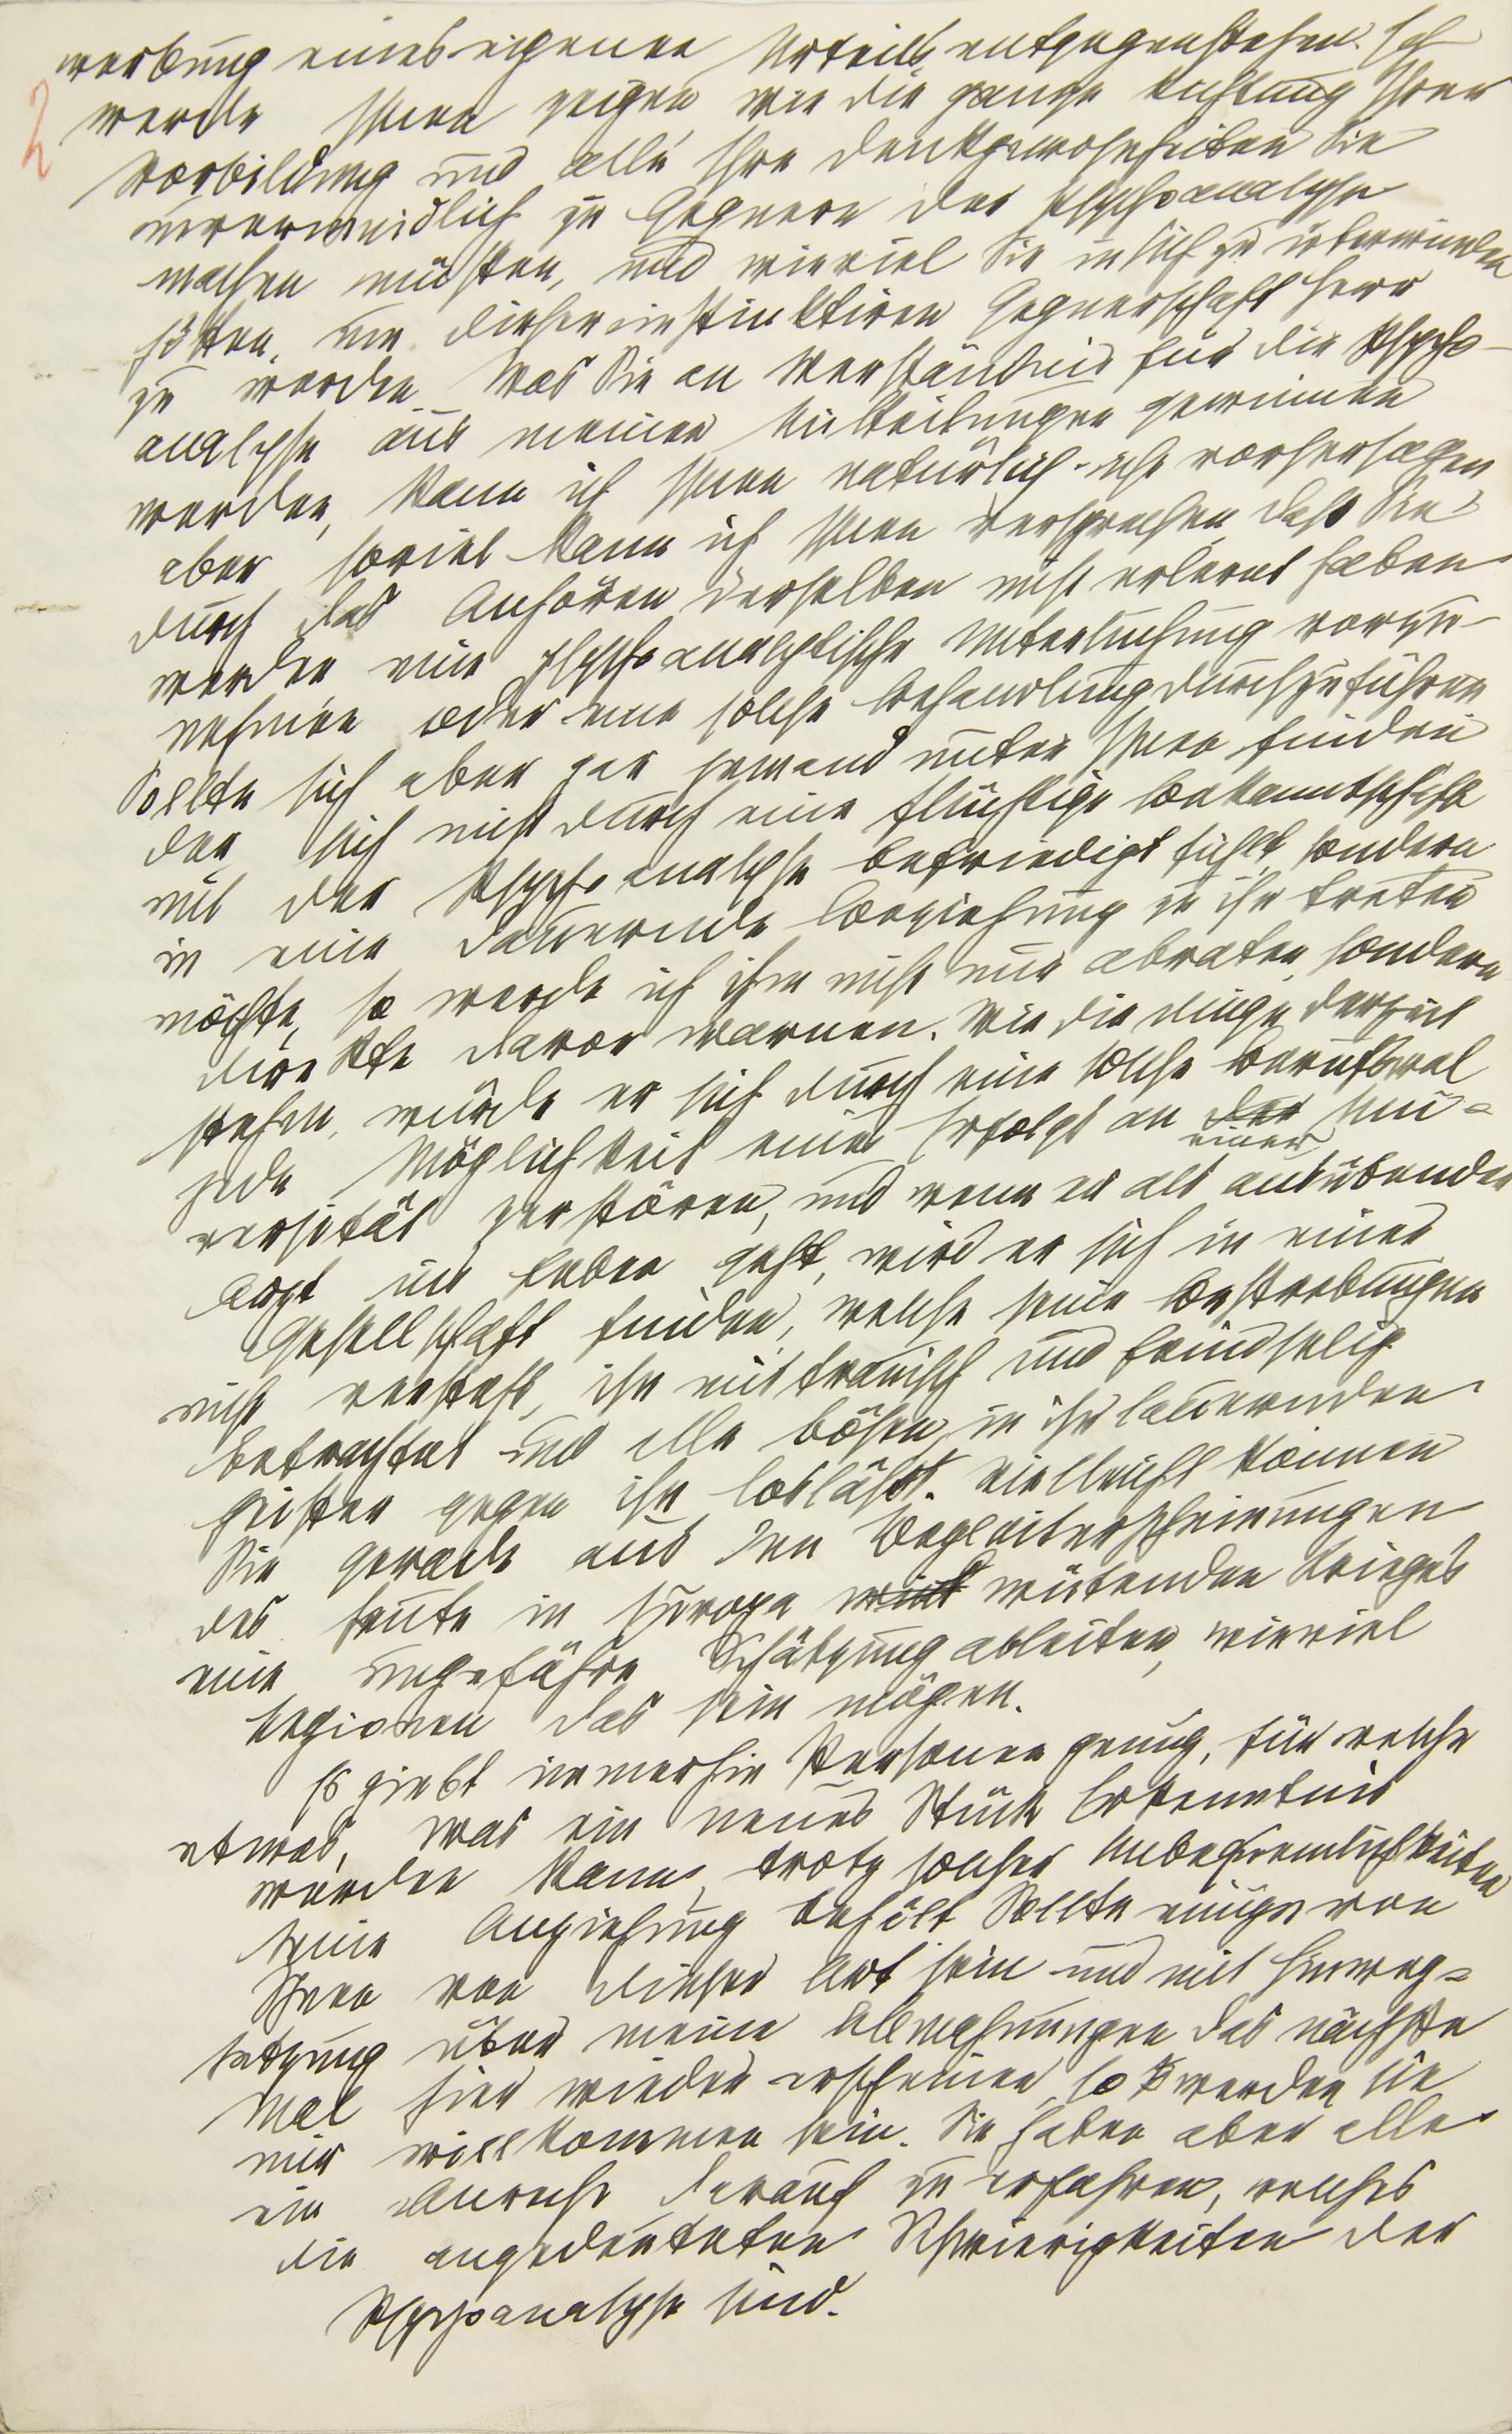 2
werbung eines eigenen Urteils entgegenstehen. Ich
werde Ihnen zeigen wie die ganze Richtung Ihrer
Vorbildung und alle Ihre Denkgewohnheiten Sie
unvermeidlich zu Gegnern der Psychoanalyse
machen müssten, und wieviel Sie in sich zu überwinden
hätten, um dieser instinktiven Gegnerschaft Herr
zu werden. Was Sie an Verständnis für die Psycho-
analyse aus meinen Mitteilungen gewinnen
werden, kann ich Ihnen natürlich nicht vorhersagen
aber soviel kann ich Ihnen versprechen, dass Sie
durch das Anhören derselben nicht erlernt haben
werden, eine psychoanalytische Untersuchung vorzu-
nehmen oder eine solche Behandlung durchzuführen
Sollte sich aber gar jemand unter Ihnen finden
der sich nicht durch eine flüchtige Bekanntschaft
mit der Psychoanalyse befriedigt fühlt, sondern
in eine dauernde Beziehung zu ihr treten
möchte, so werde ich ihm nicht nur abraten, sondern
direkte davor warnen. Wie die Dinge derzeit
stehen, würde er sich durch eine solche Berufswal
jede Möglichkeit eines Erfolgs an der Uni-
einer
versität zerstören, und wenn er als ausübender
Arzt ins Leben geht, wird er sich in einer
Gesellschaft finden, welche seine Bestrebungen
nicht versteht, ihn mistrauisch und feindselig
betrachtet und alle bösen, in ihr lauernden
Geister gegen ihn loslässt. Vielleicht können
Sie gerade aus den Begleiterscheinungen
des heute in Europa wütenden Krieges
eine ungefähre Schätzung ableiten, wieviel
Legionen das sein mögen.
Es giebt immerhin Personen genug, für welche
etwas, was ein neues Stück Erkenntnis
werden kann, trotz solcher Unbequemlichkeiten
seine Anziehung behält. Sollte einige von
Ihnen von dieser Art sein und mit Hinweg-
setzung über meine Abmahnungen das nächste
Mal hier wieder erscheinen, so werden sie
mir willkommen sein. Sie haben aber alle
ein Anrecht darauf zu erfahren, welches
die angedeuteten Schwierigkeiten der
Psychoanalyse sind.